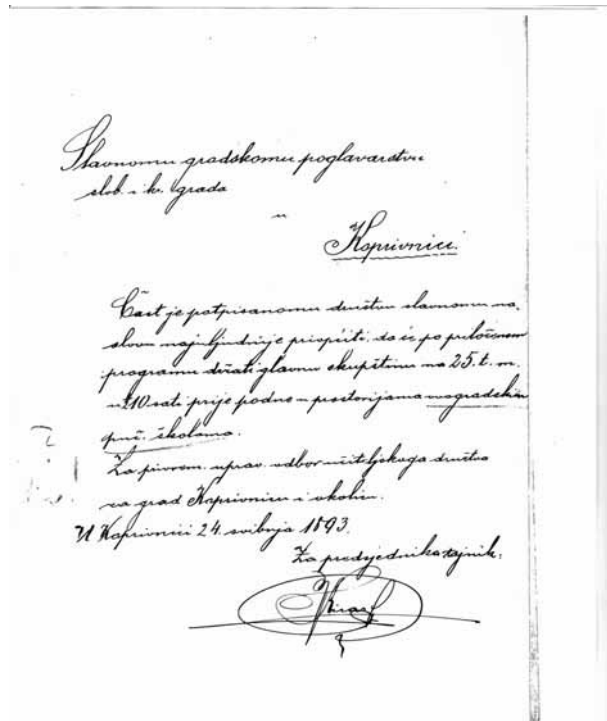 Slavnomu gradskomu poglavarstvu
slob. i kr. grada
u
Koprivnici.
Čast je potpisanomu društvu slavnomu na-
slovu najuljudnije priopćiti, da će po priloženom
programu držati glavnu skupštinu na 25. t. m.
u 10 sati prije podne u prostorijama
puč. školama.
Za privrem. uprav. odbor učiteljskoga društva
za grad Koprivnicu i okolicu.
U Koprivnici 24. svibnja 1893.
Za predsjednika tajnik: